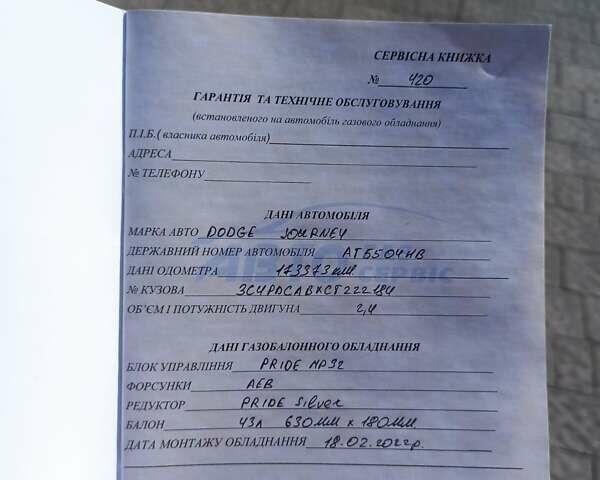 СЕРВІСНА КНИЖКА
№ 420
ГАРАНТІЯ ТА ТЕХНІЧНЕ ОБСЛУГОВУВАННЯ
(встановленого на автомобіль газового обладнання)
П.І.Б.( власника автомобіля)
АДРЕСА
№ ТЕЛЕФОНУ
ДАНІ АВТОМОБІЛЯ
МАРКА АВТО DODGE JOURNEY
ДЕРЖАВНИЙ НОМЕР АВТОМОБІЛЯ AT5504HB
ДАНІ ОДОМЕТРА 173373 км
СЕРВІС
№ КУЗОВА 3C4PDCABXCT222184
ОБ’ЄМ І ПОТУЖНІСТЬ ДВИГУНА 2,4
ДАНІ ГАЗОБАЛОННОГО ОБЛАДНАННЯ
БЛОК УПРАВЛІННЯ PRIDE MP32
ФОРСУНКИ AEB
РЕДУКТОР PRIDE Silver
БАЛОН 43л 630мм x 180мм
ДАТА МОНТАЖУ ОБЛАДНАННЯ 18.02.2022р.